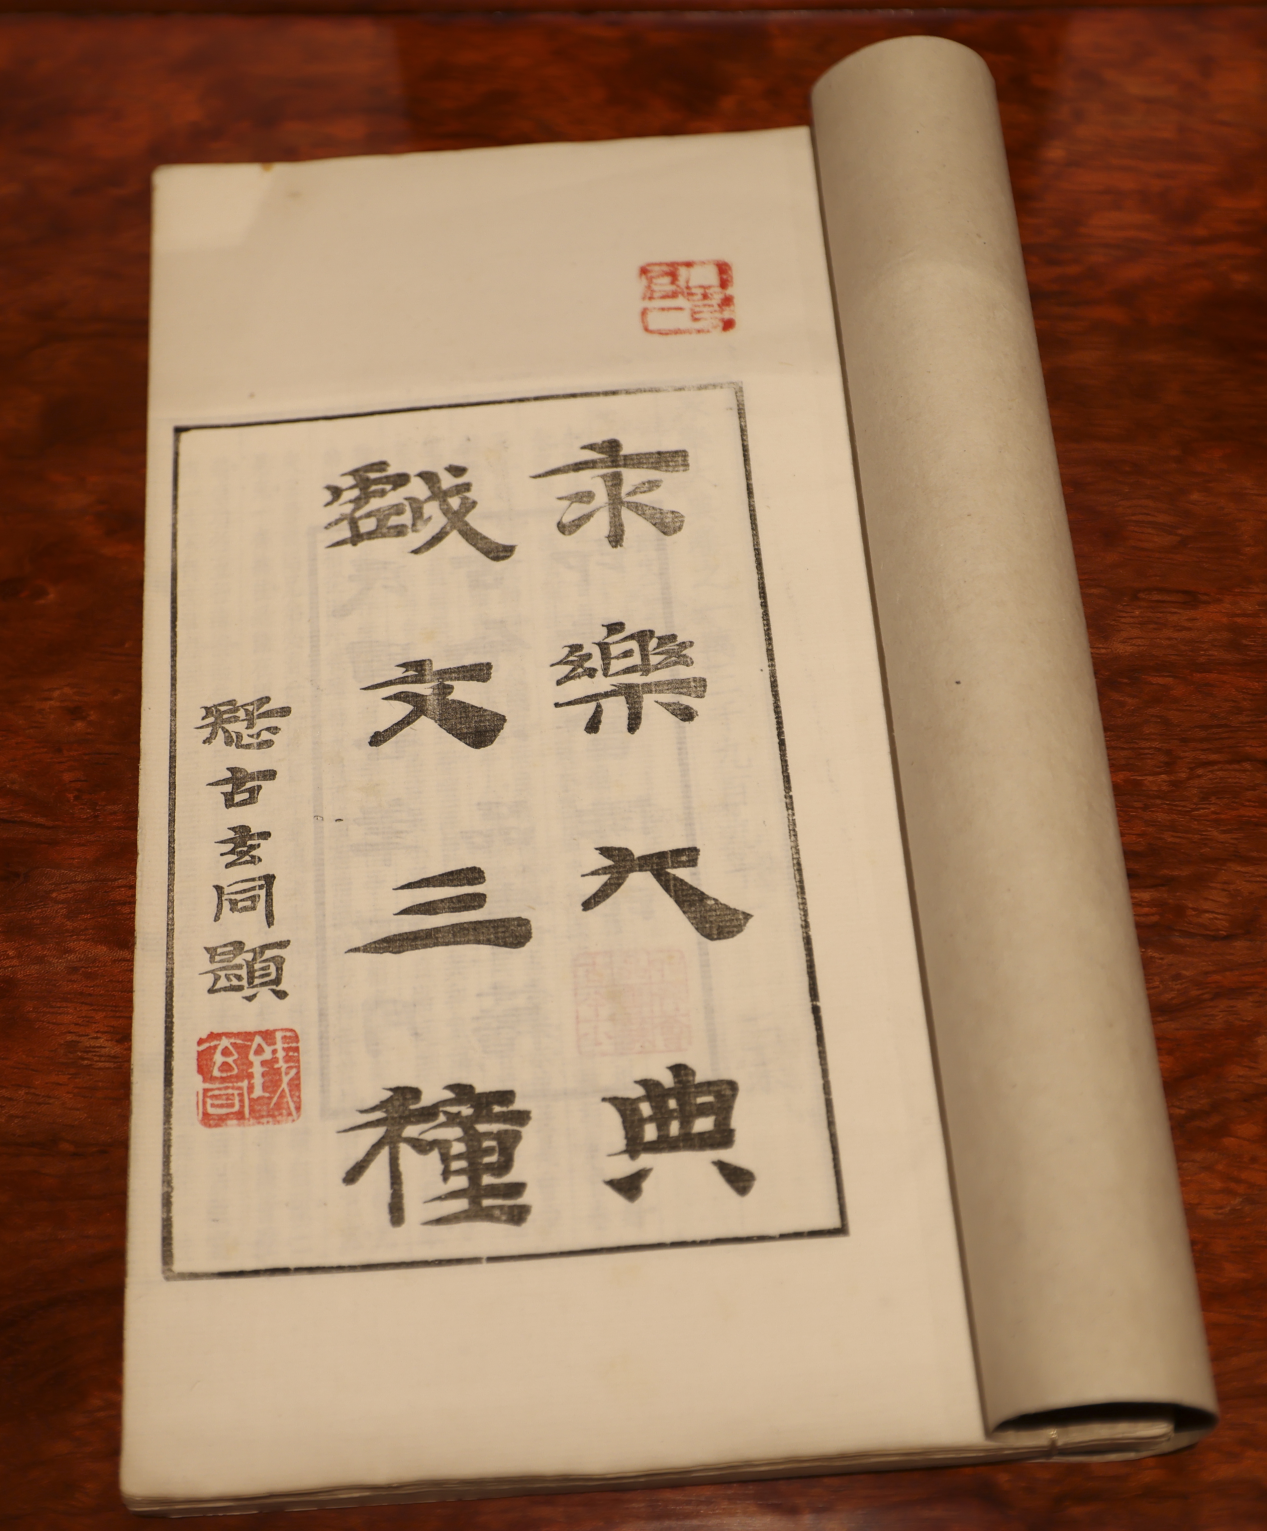 永樂大典
戲文三種
疑古玄同題
錢玄同